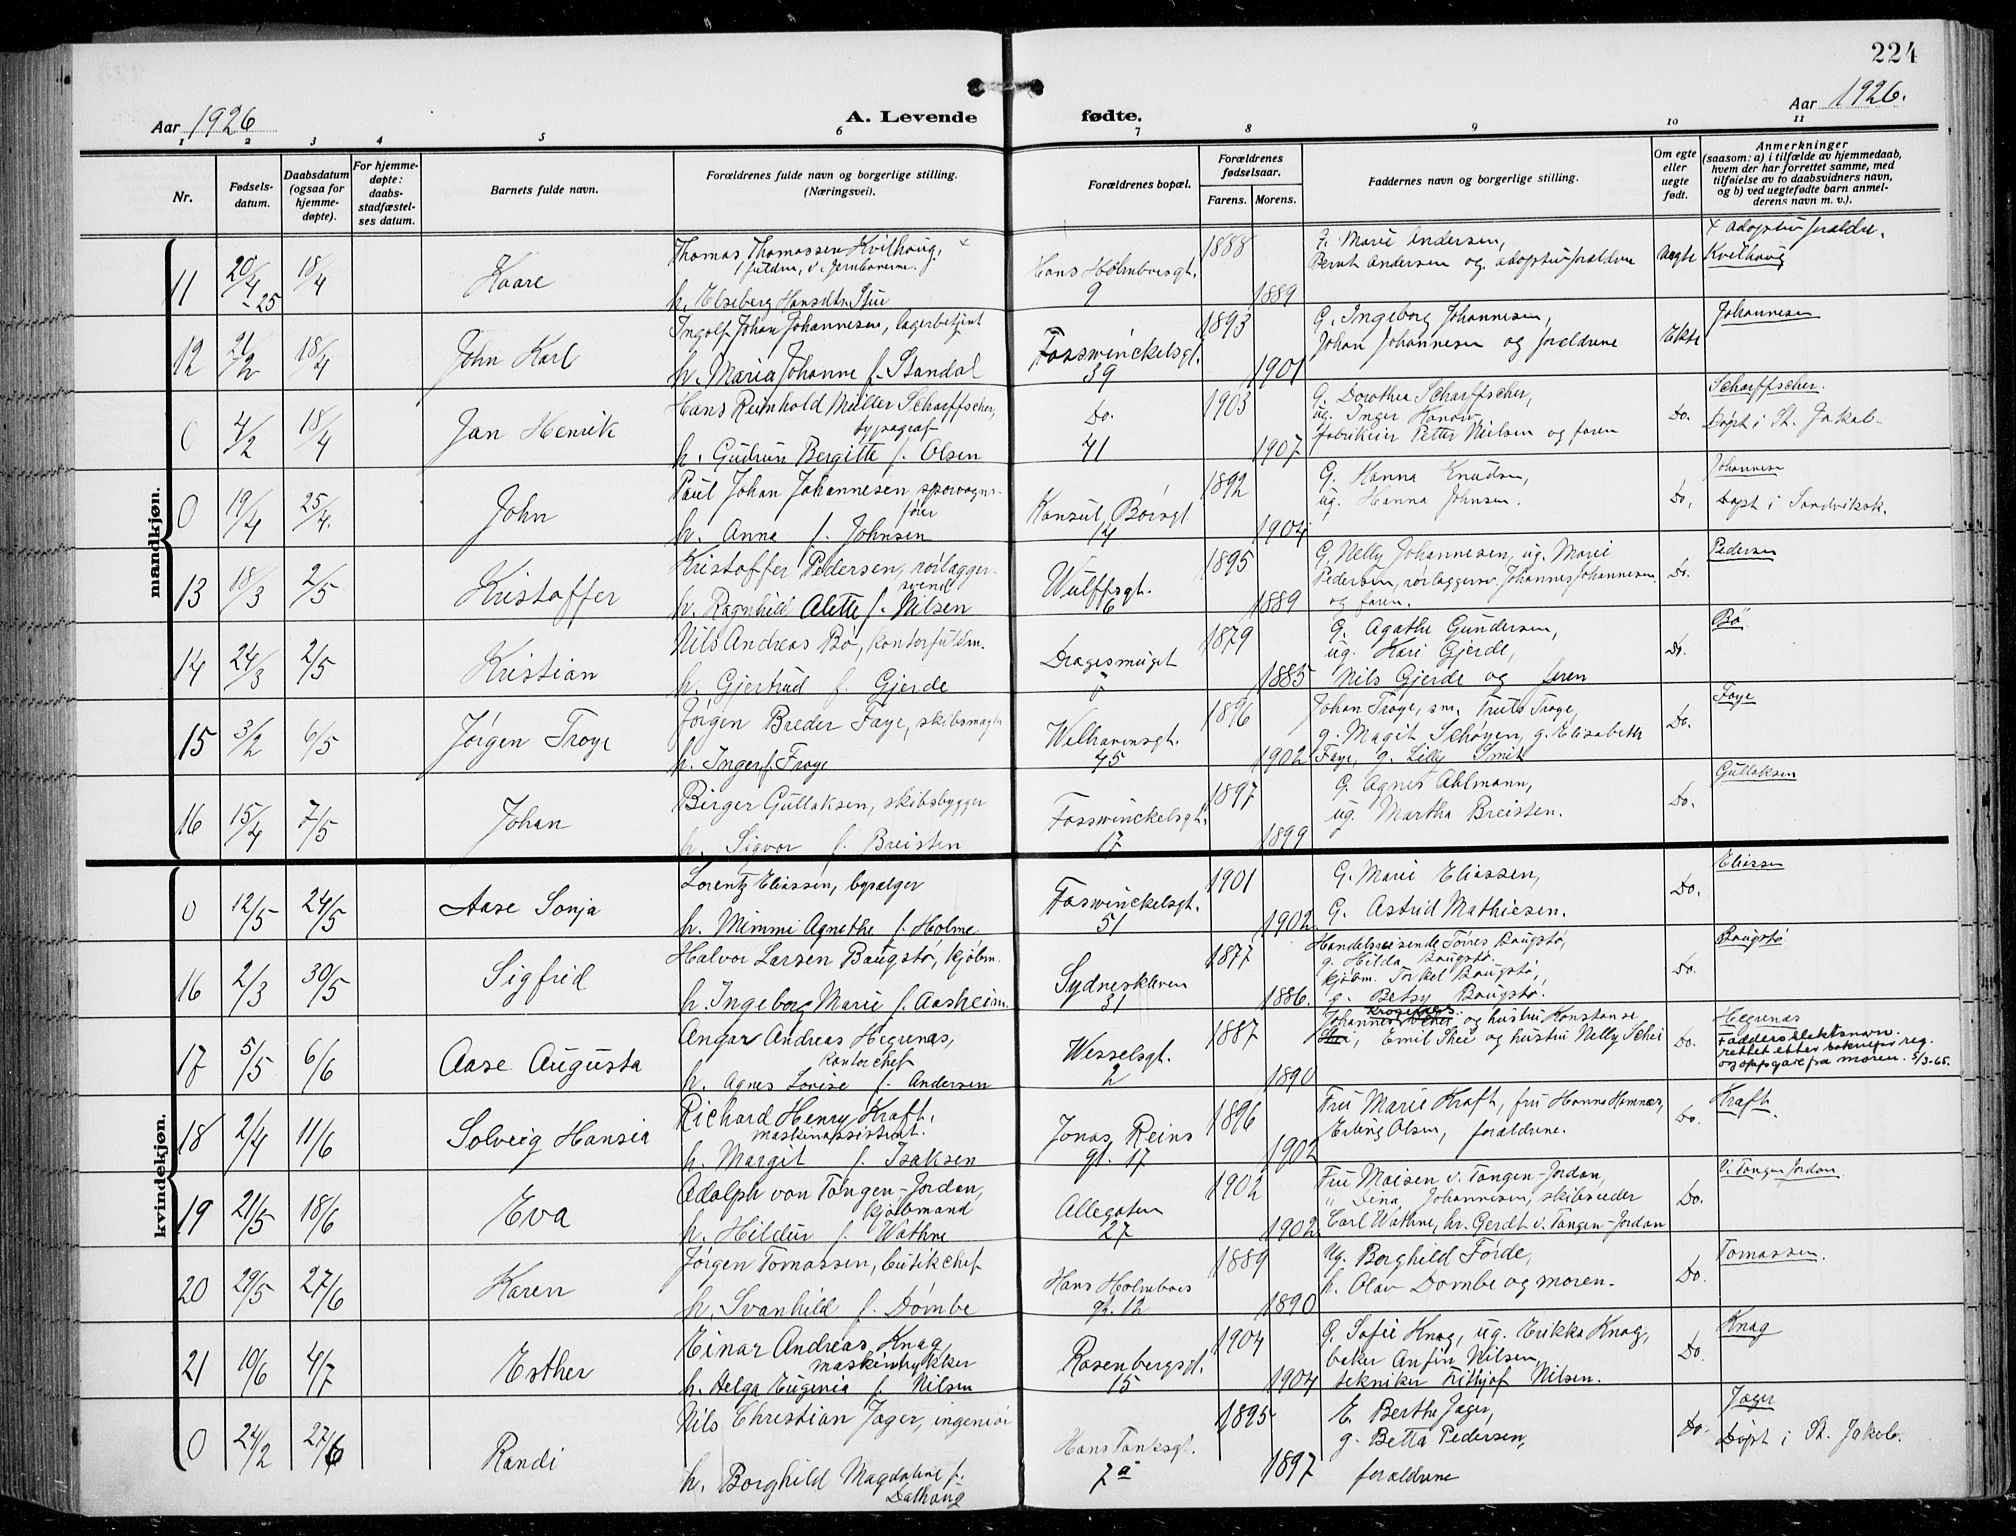 224
Aar 1926
A. Levende fødte.
Aar 1926.
1 2 3 4 5 6 7 8 9 10 11
Nr.
Fødsels-
datum.
Daabsdatum
(ogsaa for
hjemme-
døpte).
For hjemme-
døpte:
daabs-
stadfæstel-
ses datum.
Barnets fulde navn.
Forældrenes fulde navn og borgerlige stilling.
(Næringsvei).
Forældrenes bopæl.
Forældrenes
fødselsaar.
Farens. Morens.
Faddernes navn og borgerlige stilling.
Om egte
eller
uegte
født.
Anmerkninger
(saasom: a) i tilfælde av hjemmedaab,
hvem der har forrettet samme, med
tilføielse av to daabsvidners navn,
og b) ved uegtefødte barn anmel-
derens navn m. v.).
mandkjøn.
11 20/4-25 18/4 Kaare
Thomas Thomassen Kvilhaug, x
fuldm. v. Jernbanerne.
h. Elseberg Hansdtr. Stue
Hans Holmboesgt.
9
1888 1889
F. Marie Andersen,
Bernt Andersen og adoptivforældrene
Uegte
x adoptivforældre.
Kvilhaug
12 21/2 18/4 John Karl
Ingolf Johan Johannesen, lagerbetjent
h. Maria Johanne f. Standal
Fosswinckelsgt.
39
1893 1901
G. Ingeborg Johannesen,
Johan Johannesen og foreldrene
Ekte
Johannesen
0 4/2 18/4 Jan Henrik
Hans Reinhold Müller Scharffscher,
typograf
h. Gudrun Bergitte f. Olsen
Do.
41
1903 1907
G. Dorothea Scharffscher,
ug. Inger Hansen
fabrikeier Petter Nielsen og faren
Do.
Scharffscher.
Døpt i St. Jakob.
0 19/4 25/4. John
Paul Johan Johannesen sporvogns-
fører
h. Anna f. Johnsen
Konsul Børsgt
14
1892 1904
G. Hanna Knudsen,
ug. Hanna Johnsen.
Do.
Johannesen
Døpt i Sandviksk.
13 18/3 2/5 Kristoffer
Kristoffer Pedersen, rørlegger-
svend
h. Ragnhild Alette f. Nilsen
Wulffsgt.
6
1895 1889
G. Nelly Johannesen, ug. Marie
Pedersen, rørleggersv. Johannes Johannesen
og faren.
Do.
Pedersen
14 24/3 2/5 Kristian
Nils Andreas Bø, kontorfuldm.
h. Gjertrud f. Gjerde
Dragesmuget
1879 1885
G. Agathe Gundersen,
ug. Kari Gjerde,
Nils Gjerde og faren
Do.
Bø
15 3/2 6/5 Jørgen Troye
Jørgen Breder Faye, skibsmægler
h. Inger f. Troye
Welhavensgt.
45
1896 1902
Johan Troye, sm. Truls Troye,
g. Magit Schøyen, g. Elisabeth
Faye, g. Lilly Smit
Do.
Faye
16 15/4 7/5 Johan
Birger Gullaksen, skibsbygger
h. Sigvor f. Breisten
Fosswinckelsgt.
17
1897 1899
G. Agnes Ahlmann,
ug. Martha Breisten.
Do.
Gullaksen
kvindekjøn.
0 12/5 24/5 Aase Sonja
Lorentz Eliassen, bysælger
h. Mimmi Agnethe f. Holme
Foswinckelsgt.
51
1901 1902
G. Marie Eliassen,
G. Astrid Mathiesen.
Do.
Eliassen
16 2/3 30/5 Sigfrid
Halvor Larsen Baugstø, kjøbm.
h. Ingeborg Marie f. Aasheim.
Sydneskleven
31
1877 1886.
Handelsreisende Torres Baugstø,
g. Hilda Baugstø.
kjøbm. Torkel Baugstø,
g. Betsy Baugstø.
Do.
Baugstø
17 5/5 6/6 Aase Augusta
Angar Andreas Hegrenæs,
kontorchef
h. Agnes Lovise f. Andersen
Wesselsgt.
2
1887 1890
Johannes og hustru Konstanse
Emil Shei og hustru Nelly Schei
Do.
Hegrenæs
Fadders slektsnavn
rettet etter bakrupsreg.
og oppgave fra moren. 5/3-65.
18 2/4 11/6 Solveig Hansia
Richard Henry Kraft,
maskinassistent.
h. Margit f. Isaksen
Jonas Reins
gt. 17
1896 1902
Fru Marie Kraft, fru Hanna Hamnæs,
Erling Olsen, forældrene.
Do.
Kraft
19 21/5 18/6 Eva
Adolph von Tangen-Jordan,
kjøbmand
h. Hildur f. Wathne
Allegaten
27
1902 1902
Fru Maisen v. Tangen-Jordan,
" Lina Johannesen, skibsreder
Carl Wathne, hr. Gerdt v. Tangen-Jordan
Do.
v. Tangen Jordan.
20 29/5 27/6 Karen
Jørgen Tomassen, butikchef
h. Svanhild f. Dømbe
Hans Holmboes
gt. 12
1889 1890
Ug. Borghild Førde,
h. Olav Dombe og moren.
Do.
Tomassen.
21 10/6 4/7 Esther
Einar Andreas Knag,
maskintrykker
h. Helga Eugenia f. Nilsen
Rosenbergsgt.
15
1904 1904
G. Sofie Knag, ug. Erikka Knag,
beker Anfin Nilsen,
tekniker Fithjof Nilsen.
Do.
Knag
0 24/2 27/6 Randi
Nils Christian Jager, ingeniør
h. Borghild Magdaline f.
Dalhaug
Hans Tanksgt.
7 a
1895 1897
E. Berthe Jager,
g. Betta Pedersen,
forældrene
Do.
Jager
Døpt i St. Jakob.